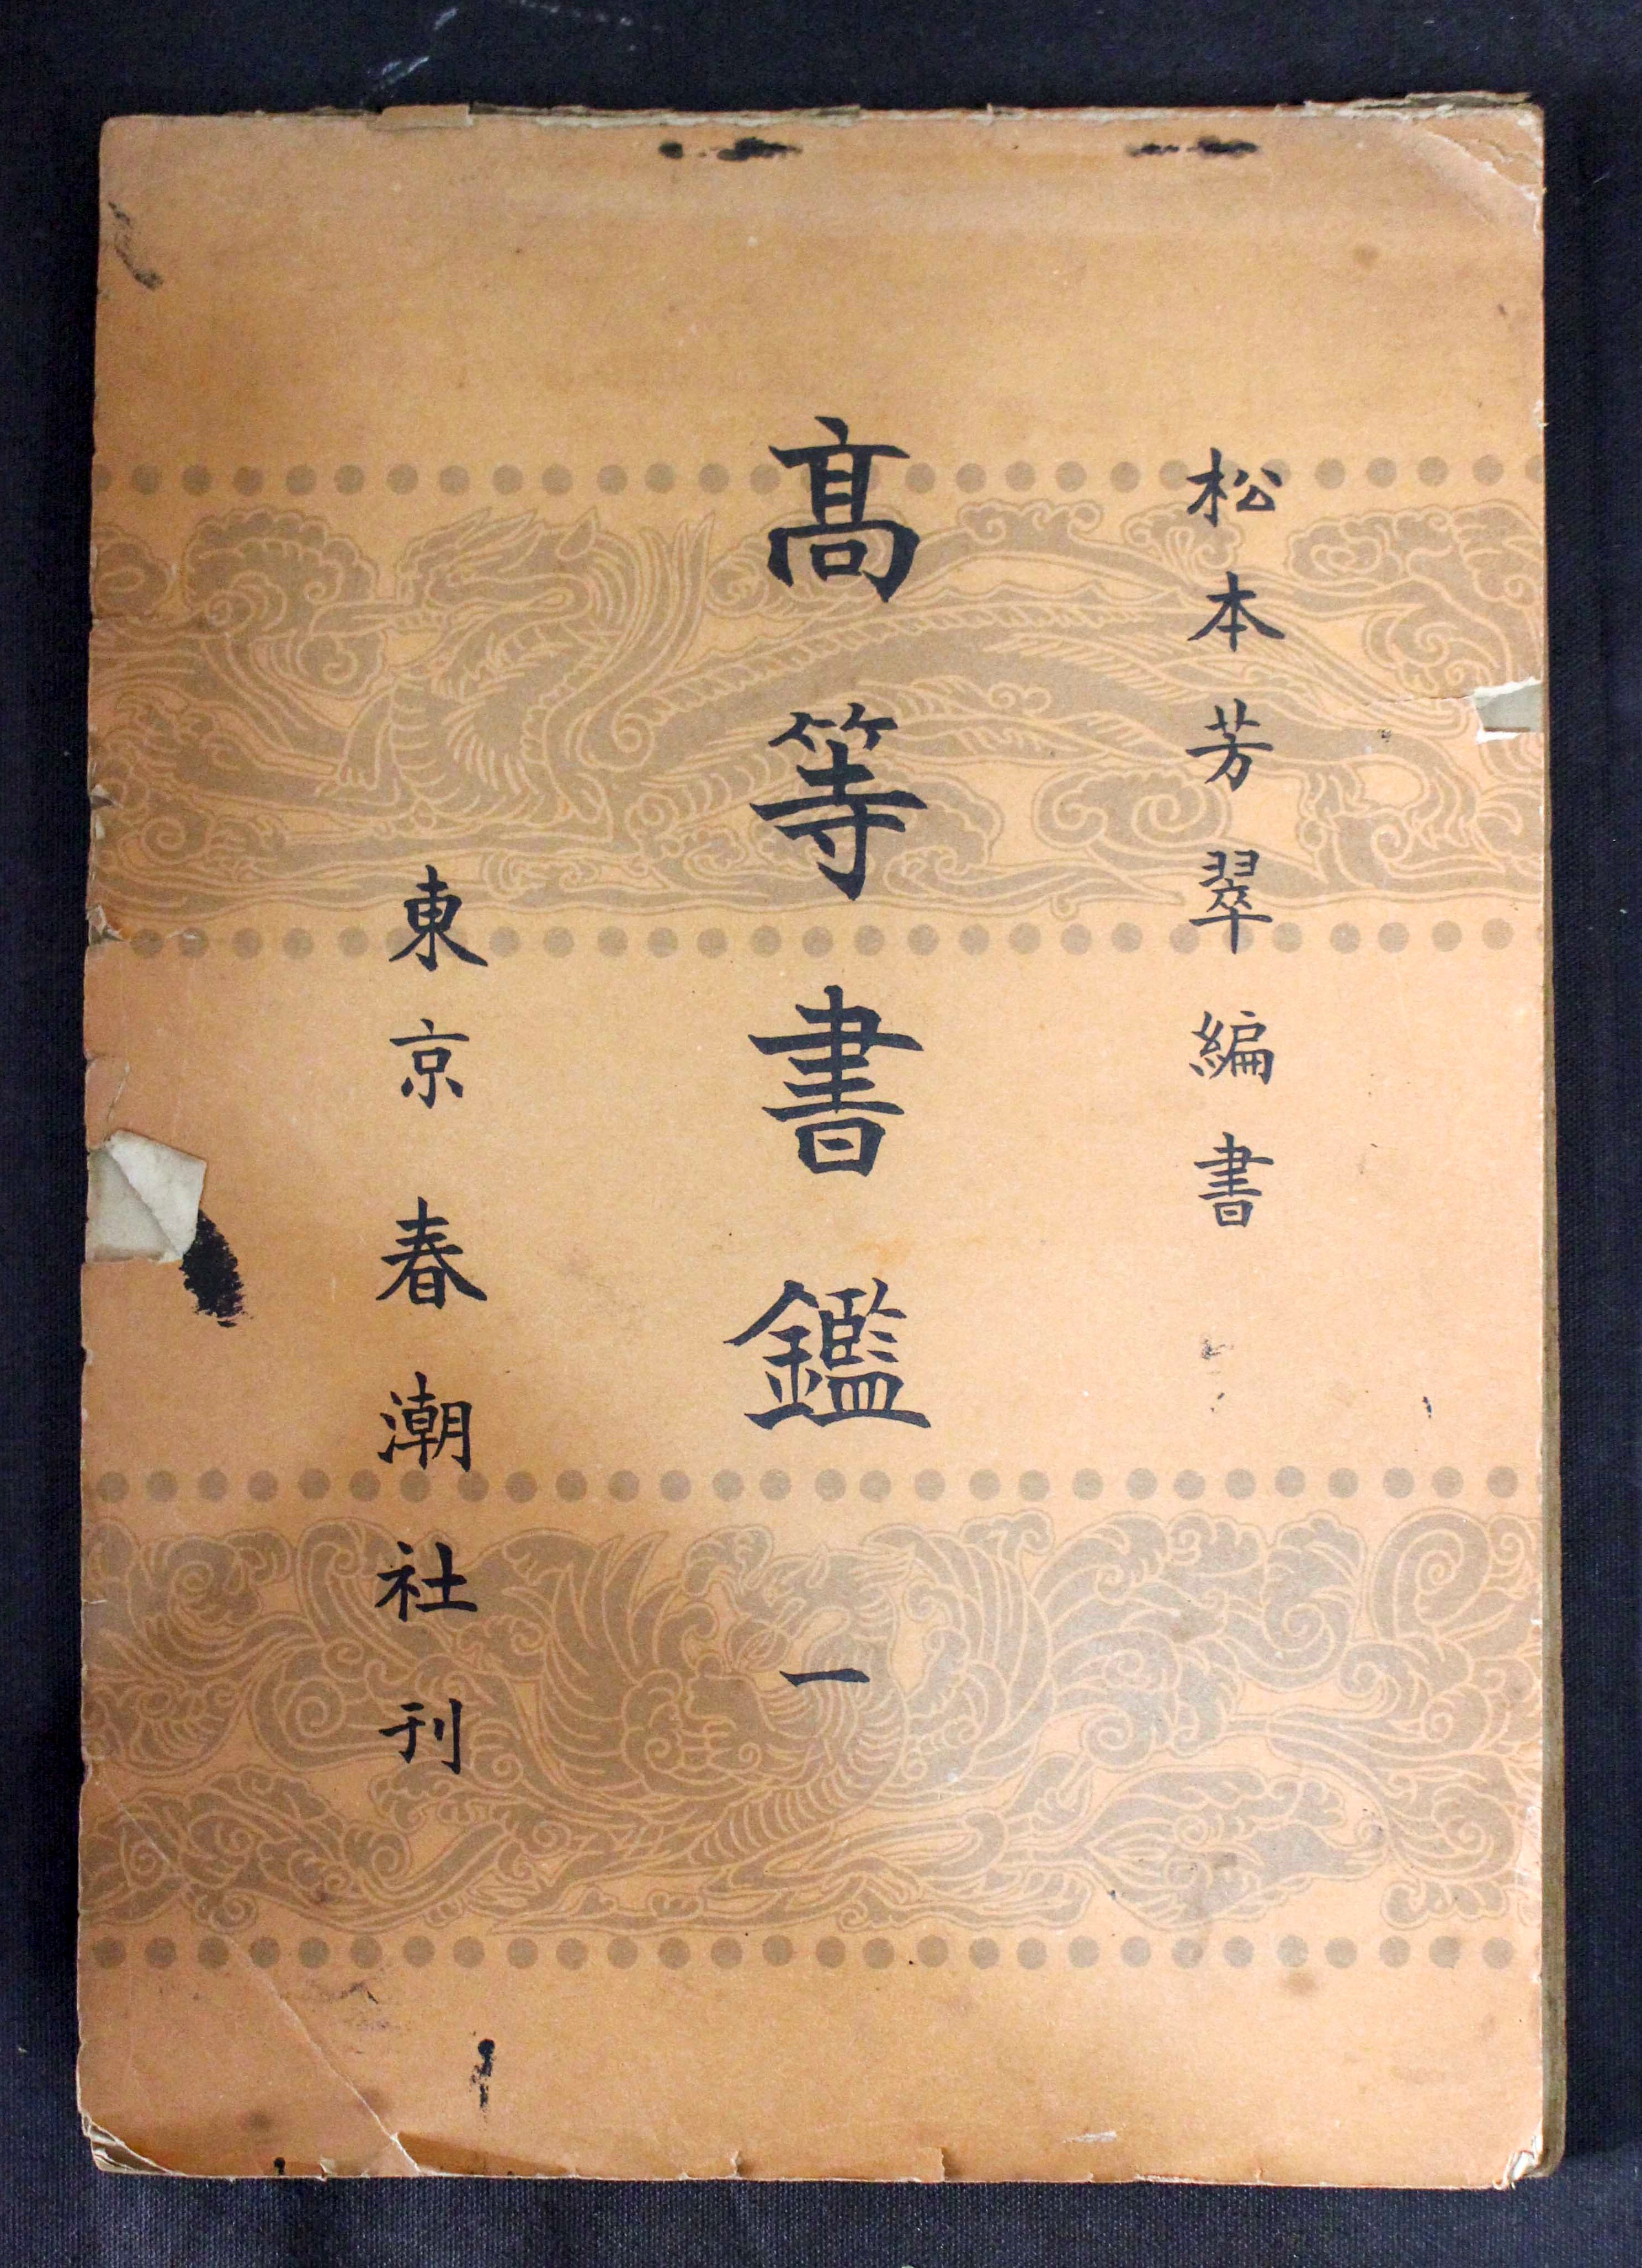 松本芳翠編書
髙等書鑑 一
東京春潮社刊